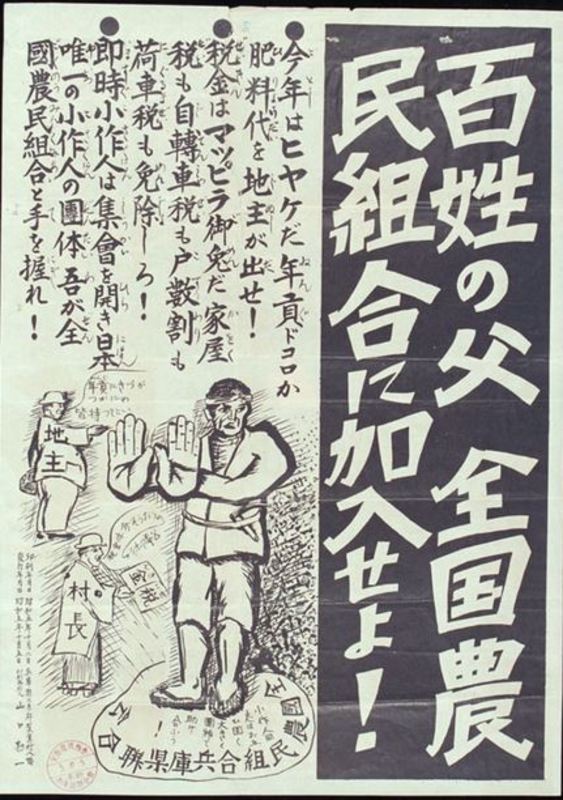 百姓の父 全国農
民組合に加入せよ!
今年はヒヤケだ年貢ドコロか
肥料代を地主が出せ!
税金はマッピラ御免だ家屋
税も自轉車税も戸数割も
荷車税も免除しろ!
即時小作人は集會を開き日本
唯一の小作人の團体吾が全
國農民組合と手を握れ!
地主
村長
國税
全國農民組合兵庫県聯合会